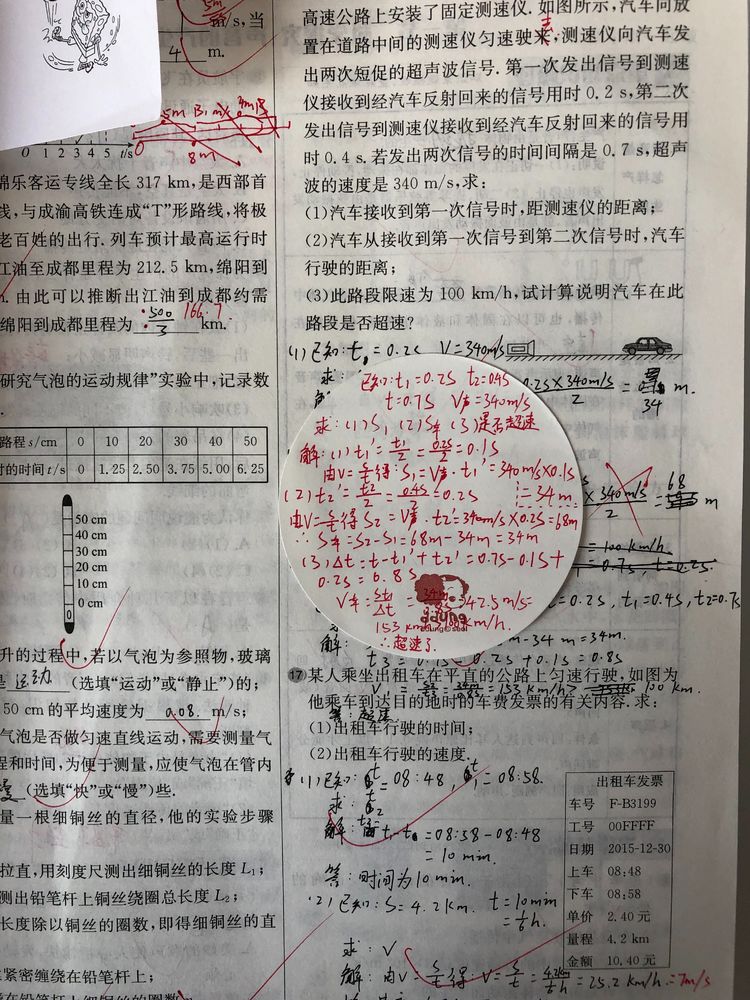 m/s,当
4 m.
0 1 2 3 4 5 t/s
8m
绵乐客运专线全长 317 km,是西部首
线,与成渝高铁连成“T”形路线,将极
老百姓的出行. 列车预计最高运行时
江油至成都里程为 212.5 km,绵阳到
. 由此可以推断出江油到成都约需
绵阳到成都里程为 500/3 166.7 km.
研究气泡的运动规律”实验中,记录数
路程 s/cm 0 10 20 30 40 50
时的时间 t/s 0 1.25 2.50 3.75 5.00 6.25
50 cm
40 cm
30 cm
20 cm
10 cm
0 cm
0
升的过程中,若以气泡为参照物,玻璃
是 运动 (选填“运动”或“静止”)的;
50 cm 的平均速度为 0.08 m/s;
气泡是否做匀速直线运动,需要测量气
程和时间,为便于测量,应使气泡在管内
慢 (选填“快”或“慢”)些.
量一根细铜丝的直径,他的实验步骤
拉直,用刻度尺测出细铜丝的长度 L₁;
测出铅笔杆上铜丝绕圈总长度 L₂;
长度除以铜丝的圈数,即得细铜丝的直
紧密缠绕在铅笔杆上;
高速公路上安装了固定测速仪. 如图所示,汽车向放
置在道路中间的测速仪匀速驶来,测速仪向汽车发
出两次短促的超声波信号. 第一次发出信号到测速
仪接收到经汽车反射回来的信号用时 0.2 s,第二次
发出信号到测速仪接收到经汽车反射回来的信号用
时 0.4 s. 若发出两次信号的时间间隔是 0.7 s,超声
波的速度是 340 m/s,求:
(1)汽车接收到第一次信号时,距测速仪的距离;
(2)汽车从接收到第一次信号到第二次信号时,汽车
行驶的距离;
(3)此路段限速为 100 km/h,试计算说明汽车在此
路段是否超速?
(1) 已知: t₁=0.2s V=340m/s
求:
0.2s×340m/s/2 = 34 m.
已知: t₁=0.2s t₂=0.4s
t=0.7s V声=340m/s
求: (1)S₁ (2)S车 (3)是否超速
解: (1) t₁'=t₁/2=0.2s/2=0.1s
由V=S/t得: S₁=V声·t₁'=340m/s×0.1s
=34m
(2) t₂'=t₂/2=0.4s/2=0.2s
由V=S/t得 S₂=V声·t₂'=340m/s×0.2s=68m
∴S车=S₂-S₁=68m-34m=34m
(3) Δt=t-t₁'+t₂'=0.7s-0.1s+
0.2s=0.8s
V车=S车/Δt=34m/0.8s=42.5m/s=
153km/h>100km/h.
∴超速了.
ddung
×340m/s/2 = 68 m
=100km/h.
=0.7s, t=0.2s.
=0.2s, t₁=0.4s, t₂=0.7s
解: m-34m=34m.
t3= 0.2s+0.1s=0.8s
=153km/h> 100km.
答: 超速
17 某人乘坐出租车在平直的公路上匀速行驶,如图为
他乘车到达目的地时的车费发票的有关内容. 求:
(1)出租车行驶的时间;
(2)出租车行驶的速度.
(1) 已知: t=08:48, t₁=08:58.
求: t₂
解: =08:58-08:48
=10 min.
答: 时间为10 min.
(2) 已知: S=4.2km. t=10min
=1/6h.
求: V
解: 由V=S/t得: V=S/t=4.2km/1/6h=25.2km/h.=7m/s
出租车发票
车号 F-B3199
工号 00FFFF
日期 2015-12-30
上车 08:48
下车 08:58
单价 2.40 元
量程 4.2 km
金额 10.40 元